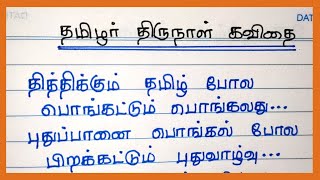 DAT
தமிழர் திருநாள் கவிதை
தித்திக்கும் தமிழ் போல
பொங்கட்டும் பொங்கலது...
புதுப்பானை பொங்கல் போல
பிறக்கட்டும் புதுவாழ்வு...